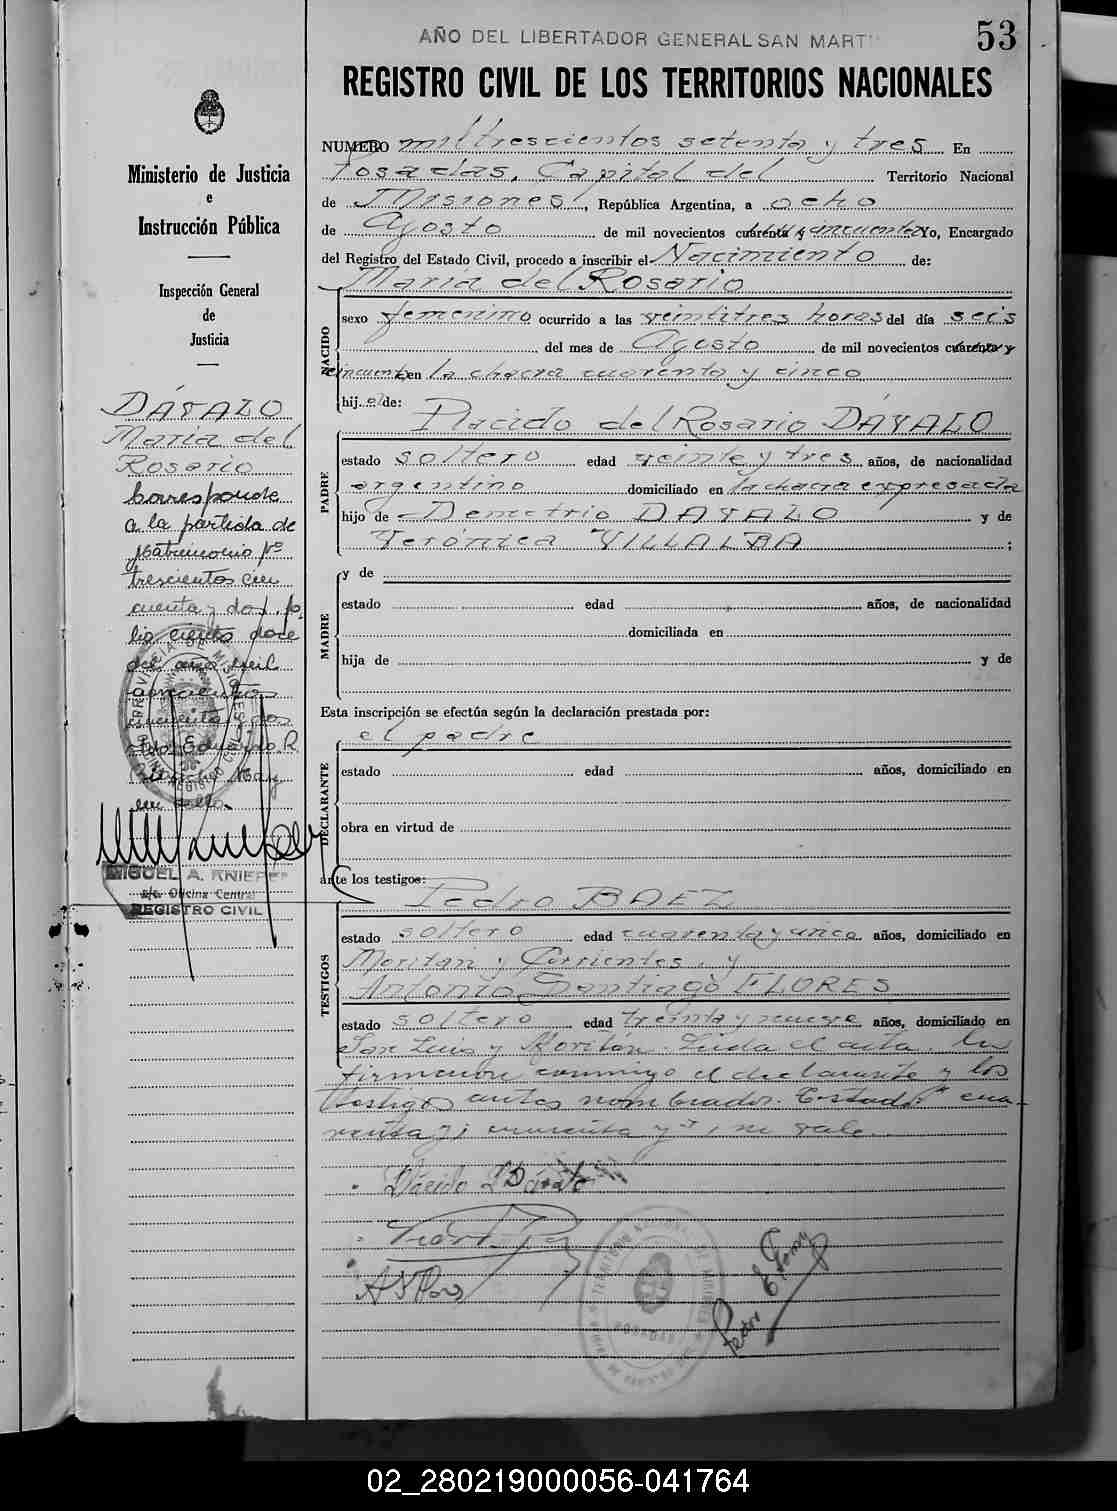 AÑO DEL LIBERTADOR GENERAL SAN MART
53
REGISTRO CIVIL DE LOS TERRITORIOS NACIONALES
Ministerio de Justicia
e
Instrucción Pública
Inspección General
de
Justicia
DÁVALO
María del
Rosario
Corresponde
a la partida de
Matrimonio Nº
trescientos cin
cuenta y dos, fo
lio ciento doce
del año mil
novecientos
cincuenta y dos
MIGUEL A. KNIEPER
a/c. Oficina Central
REGISTRO CIVIL
NUMERO mil trescientos setenta y tres En
Posadas, Capital del Territorio Nacional
de Misiones, República Argentina, a ocho
de Agosto de mil novecientos cuarenta y cincuenta Yo, Encargado
del Registro del Estado Civil, procedo a inscribir el Nacimiento de:
María del Rosario
NACIDO
sexo femenino ocurrido a las veintitres horas del día seis
del mes de Agosto de mil novecientos cuarenta y
cincuenta en la chacra cuarenta y cinco
hij el de:
Placido del Rosario DÁVALO
PADRE
estado soltero edad veinte y tres años, de nacionalidad
argentino domiciliado en la chacra expresada
hijo de Demetrio DAVALO y de
Verónica VILLALBA ;
MADRE
y de
estado edad años, de nacionalidad
domiciliada en
hija de y de
Esta inscripción se efectúa según la declaración prestada por:
el padre
DECLARANTE
estado edad años, domiciliado en
obra en virtud de
ante los testigos:
Pedro BAEZ
TESTIGOS
estado soltero edad cuarenta y cinco años, domiciliado en
Moritan y Corrientes, y
Antonio Santiago FLORES
estado soltero edad treinta y nueve años, domiciliado en
San Luis y Moritan. Leída el acta, la
firmaron conmigo el declarante y los
testigos antes nombrados. Testado: "cua
renta y", no vale.
Plácido DÁvalo
TERRITORIO NACIONAL DE MISIONES
POSADAS
02_280219000056-041764